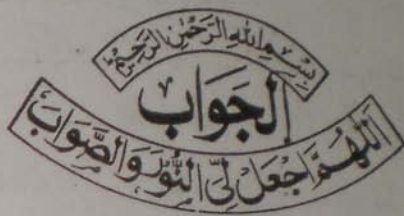 بِسْمِ اللهِ الرَّحْمٰنِ الرَّحِيْمِ
اَلجَوَابْ
اَللّٰهُمَّ اجْعَلْ لِّیْ النُّوْرَ وَالصَّوَابَ